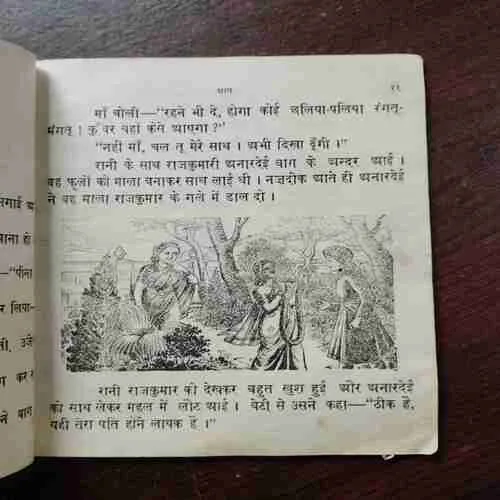 ११
माँ बोली—"रहने भी दे, होगा कोई छलिया-पलिया रंगतू-
मंगतू । कुँवर यहाँ कैसे आएगा ?"
"नहीं माँ, चल तू मेरे साथ । अभी दिखा दूँगी ।"
रानी के साथ राजकुमारी अनारदेई बाग के अन्दर आई ।
वह फूलों की माला बनाकर साथ लाई थी । नज़दीक आते ही अनारदेई
ने वह माला राजकुमार के गले में डाल दी ।
रानी राजकुमार को देखकर बहुत खुश हुई और अनारदेई
को साथ लेकर महल में लौट आई । बेटी से उसने कहा—"ठीक है,
यही तेरा पति होने लायक है ।"